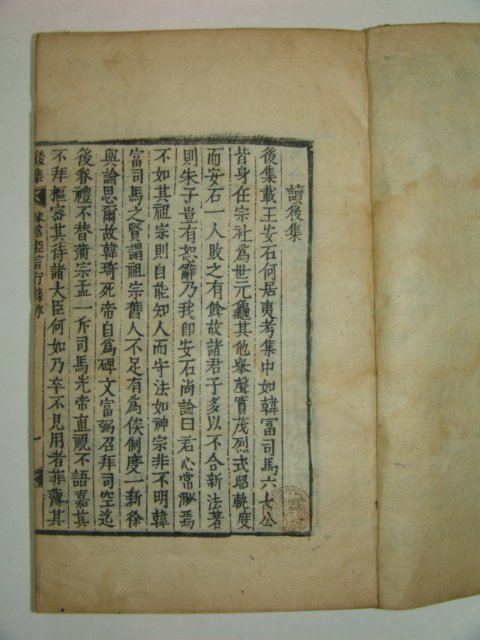 讀後集
後集載王安石何居夷考集中如韓富司馬六七公
皆身任宗社為世元龜其他舉聲實茂烈式昭軌度
而安石一人敗之有餘故諸君子多以不合新法著
則朱子豈有恕辭乃我即安石尚論曰若心常 焉
不如其祖宗則自能知人而守法如神宗非不明韓
富司馬之賢謂祖宗舊人不足有為俟制度一新徐
與論思爾故韓琦死帝自為碑文富弼召拜司空迄
後眷禮不替蒲宗孟一斥司馬光帝直視不語嘉其
不拜樞密其待諸大臣何如乃卒不見用者非薄其
後集 宋名臣言行錄序 一